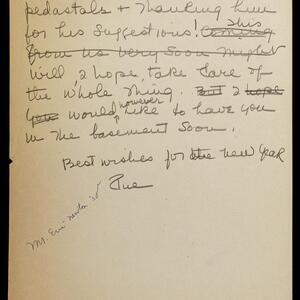 pedastals + thanking him
for his suggestions! coming This
from us very soon might
will I hope, take care of
the whole thing. But I hope
you would however like to have you
in the basement soon.
Best wishes for the new year